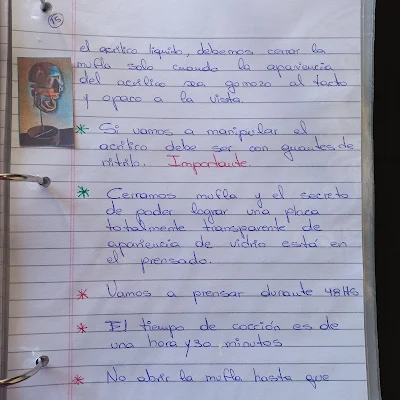 15
el acrílico líquido, debemos cerrar la
mufla solo cuando la apariencia
del acrílico sea gomoso al tacto
y opaco a la vista.
* Si vamos a manipular el
acrílico debe ser con guantes de
nitrilo. Importante.
* Cerramos mufla y el secreto
de poder lograr una placa
totalmente transparente de
apariencia de vidrio está en
el prensado.
* Vamos a prensar durante 48Hs
* El tiempo de cocción es de
una hora y 30 minutos
* No abrir la mufla hasta que